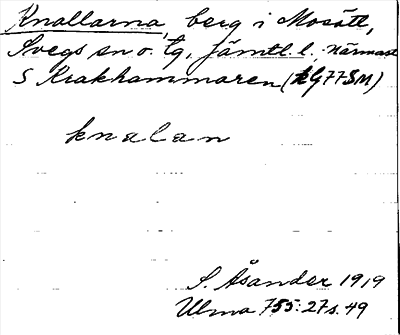 Knallarna, berg i Mosätt,
Svegs sn o. tg, Jämtl. l., närmast
S Krakhammaren (kG77SM)
knalan
S. Åsander 1919
Ulma 755:27 s. 49